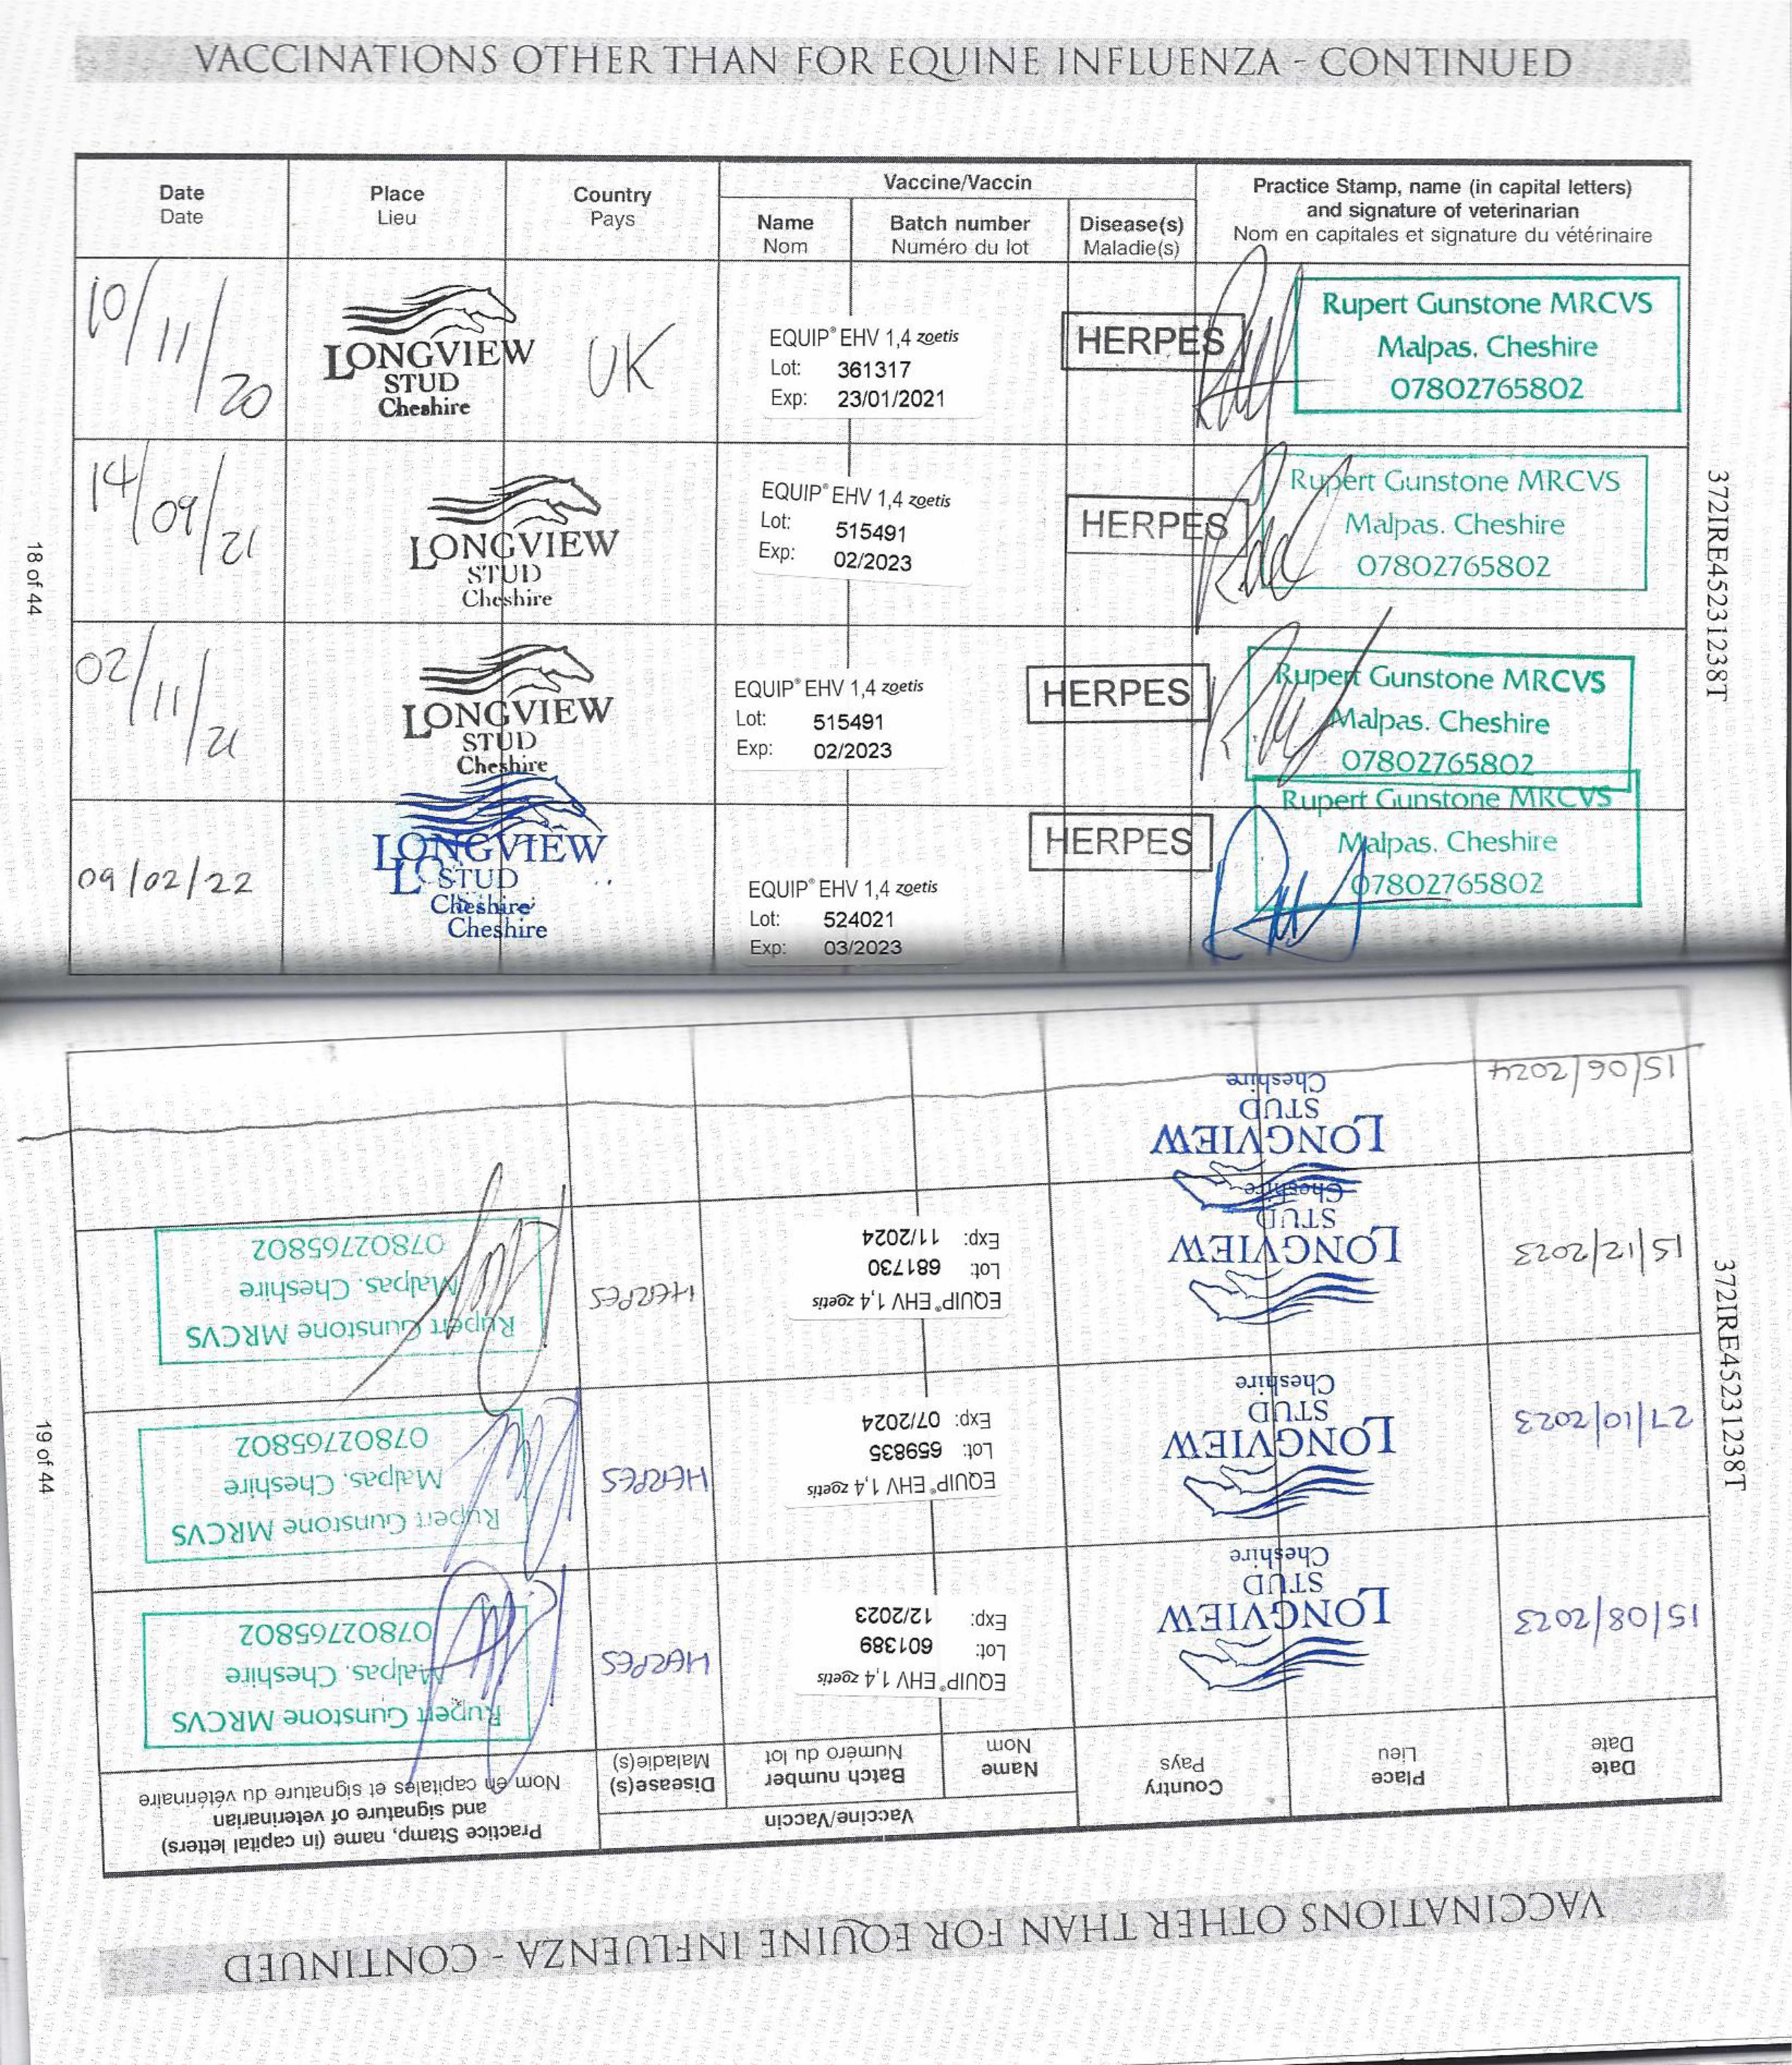 VACCINATIONS OTHER THAN FOR EQUINE INFLUENZA - CONTINUED
Date
Date
Place
Lieu
Country
Pays
Vaccine/Vaccin
Name
Nom
Batch number
Numéro du lot
Disease(s)
Maladie(s)
Practice Stamp, name (in capital letters)
and signature of veterinarian
Nom en capitales et signature du vétérinaire
10/11/20
LONGVIEW
STUD
Cheshire
UK
EQUIP® EHV 1,4 zoetis
Lot: 361317
Exp: 23/01/2021
HERPES
Rupert Gunstone MRCVS
Malpas. Cheshire
07802765802
14/09/21
LONGVIEW
STUD
Cheshire
EQUIP® EHV 1,4 zoetis
Lot: 515491
Exp: 02/2023
HERPES
Rupert Gunstone MRCVS
Malpas. Cheshire
07802765802
02/11/21
LONGVIEW
STUD
Cheshire
EQUIP® EHV 1,4 zoetis
Lot: 515491
Exp: 02/2023
HERPES
Rupert Gunstone MRCVS
Malpas. Cheshire
07802765802
09/02/22
LONGVIEW
STUD
Cheshire
Cheshire
EQUIP® EHV 1,4 zoetis
Lot: 524021
Exp: 03/2023
HERPES
Rupert Gunstone MRCVS
Malpas. Cheshire
07802765802
18 of 44
372IRE45231238T
VACCINATIONS OTHER THAN FOR EQUINE INFLUENZA - CONTINUED
Date
Date
Place
Lieu
Country
Pays
Vaccine/Vaccin
Name
Nom
Batch number
Numéro du lot
Disease(s)
Maladie(s)
Practice Stamp, name (in capital letters)
and signature of veterinarian
Nom en capitales et signature du vétérinaire
15/08/2023
LONGVIEW
STUD
Cheshire
EQUIP® EHV 1,4 zoetis
Lot: 601389
Exp: 12/2023
HERPES
Rupert Gunstone MRCVS
Malpas. Cheshire
07802765802
27/10/2023
LONGVIEW
STUD
Cheshire
EQUIP® EHV 1,4 zoetis
Lot: 659835
Exp: 07/2024
HERPES
Rupert Gunstone MRCVS
Malpas. Cheshire
07802765802
15/12/2023
LONGVIEW
STUD
Cheshire
EQUIP® EHV 1,4 zoetis
Lot: 681730
Exp: 11/2024
HERPES
Rupert Gunstone MRCVS
Malpas. Cheshire
07802765802
15/06/2024
LONGVIEW
STUD
Cheshire
19 of 44
372IRE45231238T